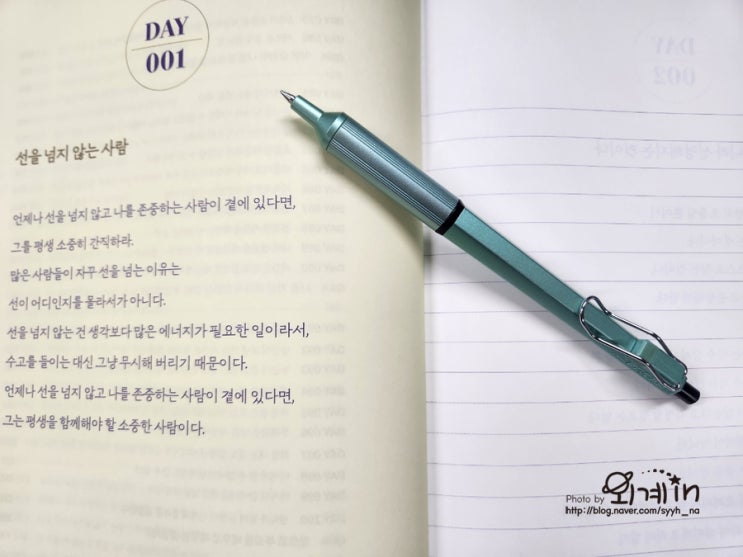 DAY
001
선을 넘지 않는 사람
언제나 선을 넘지 않고 나를 존중하는 사람이 곁에 있다면,
그를 평생 소중히 간직하라.
많은 사람들이 자꾸 선을 넘는 이유는
선이 어디인지를 몰라서가 아니다.
선을 넘지 않는 건 생각보다 많은 에너지가 필요한 일이라서,
수고를 들이는 대신 그냥 무시해 버리기 때문이다.
언제나 선을 넘지 않고 나를 존중하는 사람이 곁에 있다면,
그는 평생을 함께해야 할 소중한 사람이다.
DAY
002
Photo by 외계in
http://blog.naver.com/syyh_na